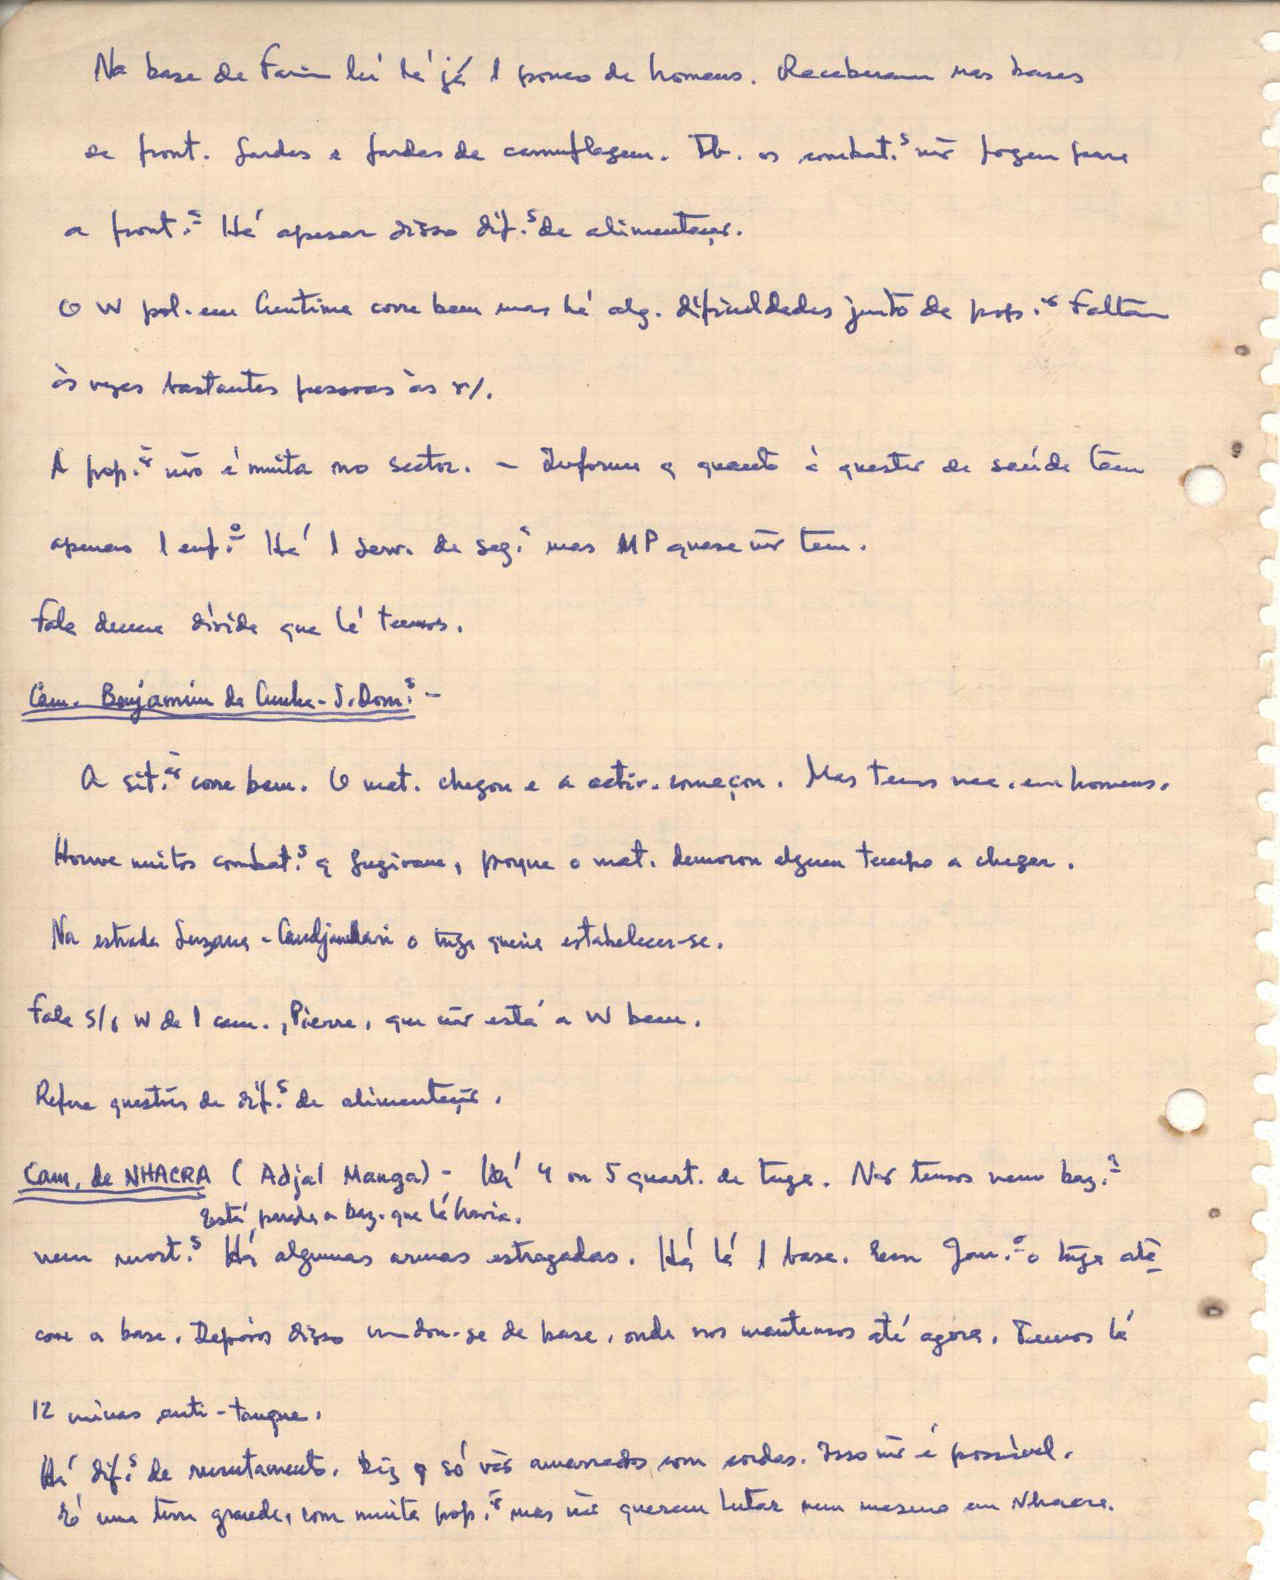 Na base de Farim há já 1 pouco de homens. Receberam nas bases
de front. fardas e fardas de camuflagem. Tb. os combat.s não fogem para
a front.ª Há apesar disso dif.s de alimentação.
O W pol. em Centima corre bem mas há alg. dificuldades junto da pop.ão Faltam
às vezes bastantes pessoas às r/.
A pop.ão não é muita no sector. - Informa q quanto à questão de saúde têm
apenas 1 enf.º Há 1 serv. de seg.ª mas MP quase não tem.
Fala duma dívida que lá temos.
Cam. Benjamim da Cunha - S. Dom.s -
A sit.ão corre bem. O mat. chegou e a activ. começou. Mas temos nec. em homens.
Houve muitos combat.s q fugiram, porque o mat. demorou algum tempo a chegar.
Na estrada Suzana - o tuga queria estabelecer-se.
Fala s/ o W de 1 cam., Pierre, que não está a W bem.
Refere questões de dif.s de alimentação.
Cam. de NHACRA (Adjal Manga) - Há 4 ou 5 quart. de tuga. Não temos nem baz.ª
Está perdida a baz. que lá havia.
nem mort.s Há algumas armas estragadas. Há lá 1 base. Em Jan.º o tuga ata-
cou a base. Depois disso mudou-se de base, onde nos mantemos até agora. Temos lá
12 minas anti-tanque.
Há dif.s de recrutamento. Diz q só vão amarrados com cordas. Isso não é possível.
É uma terra grande, com muita pop.ão mas não querem lutar nem mesmo em Nhacra.